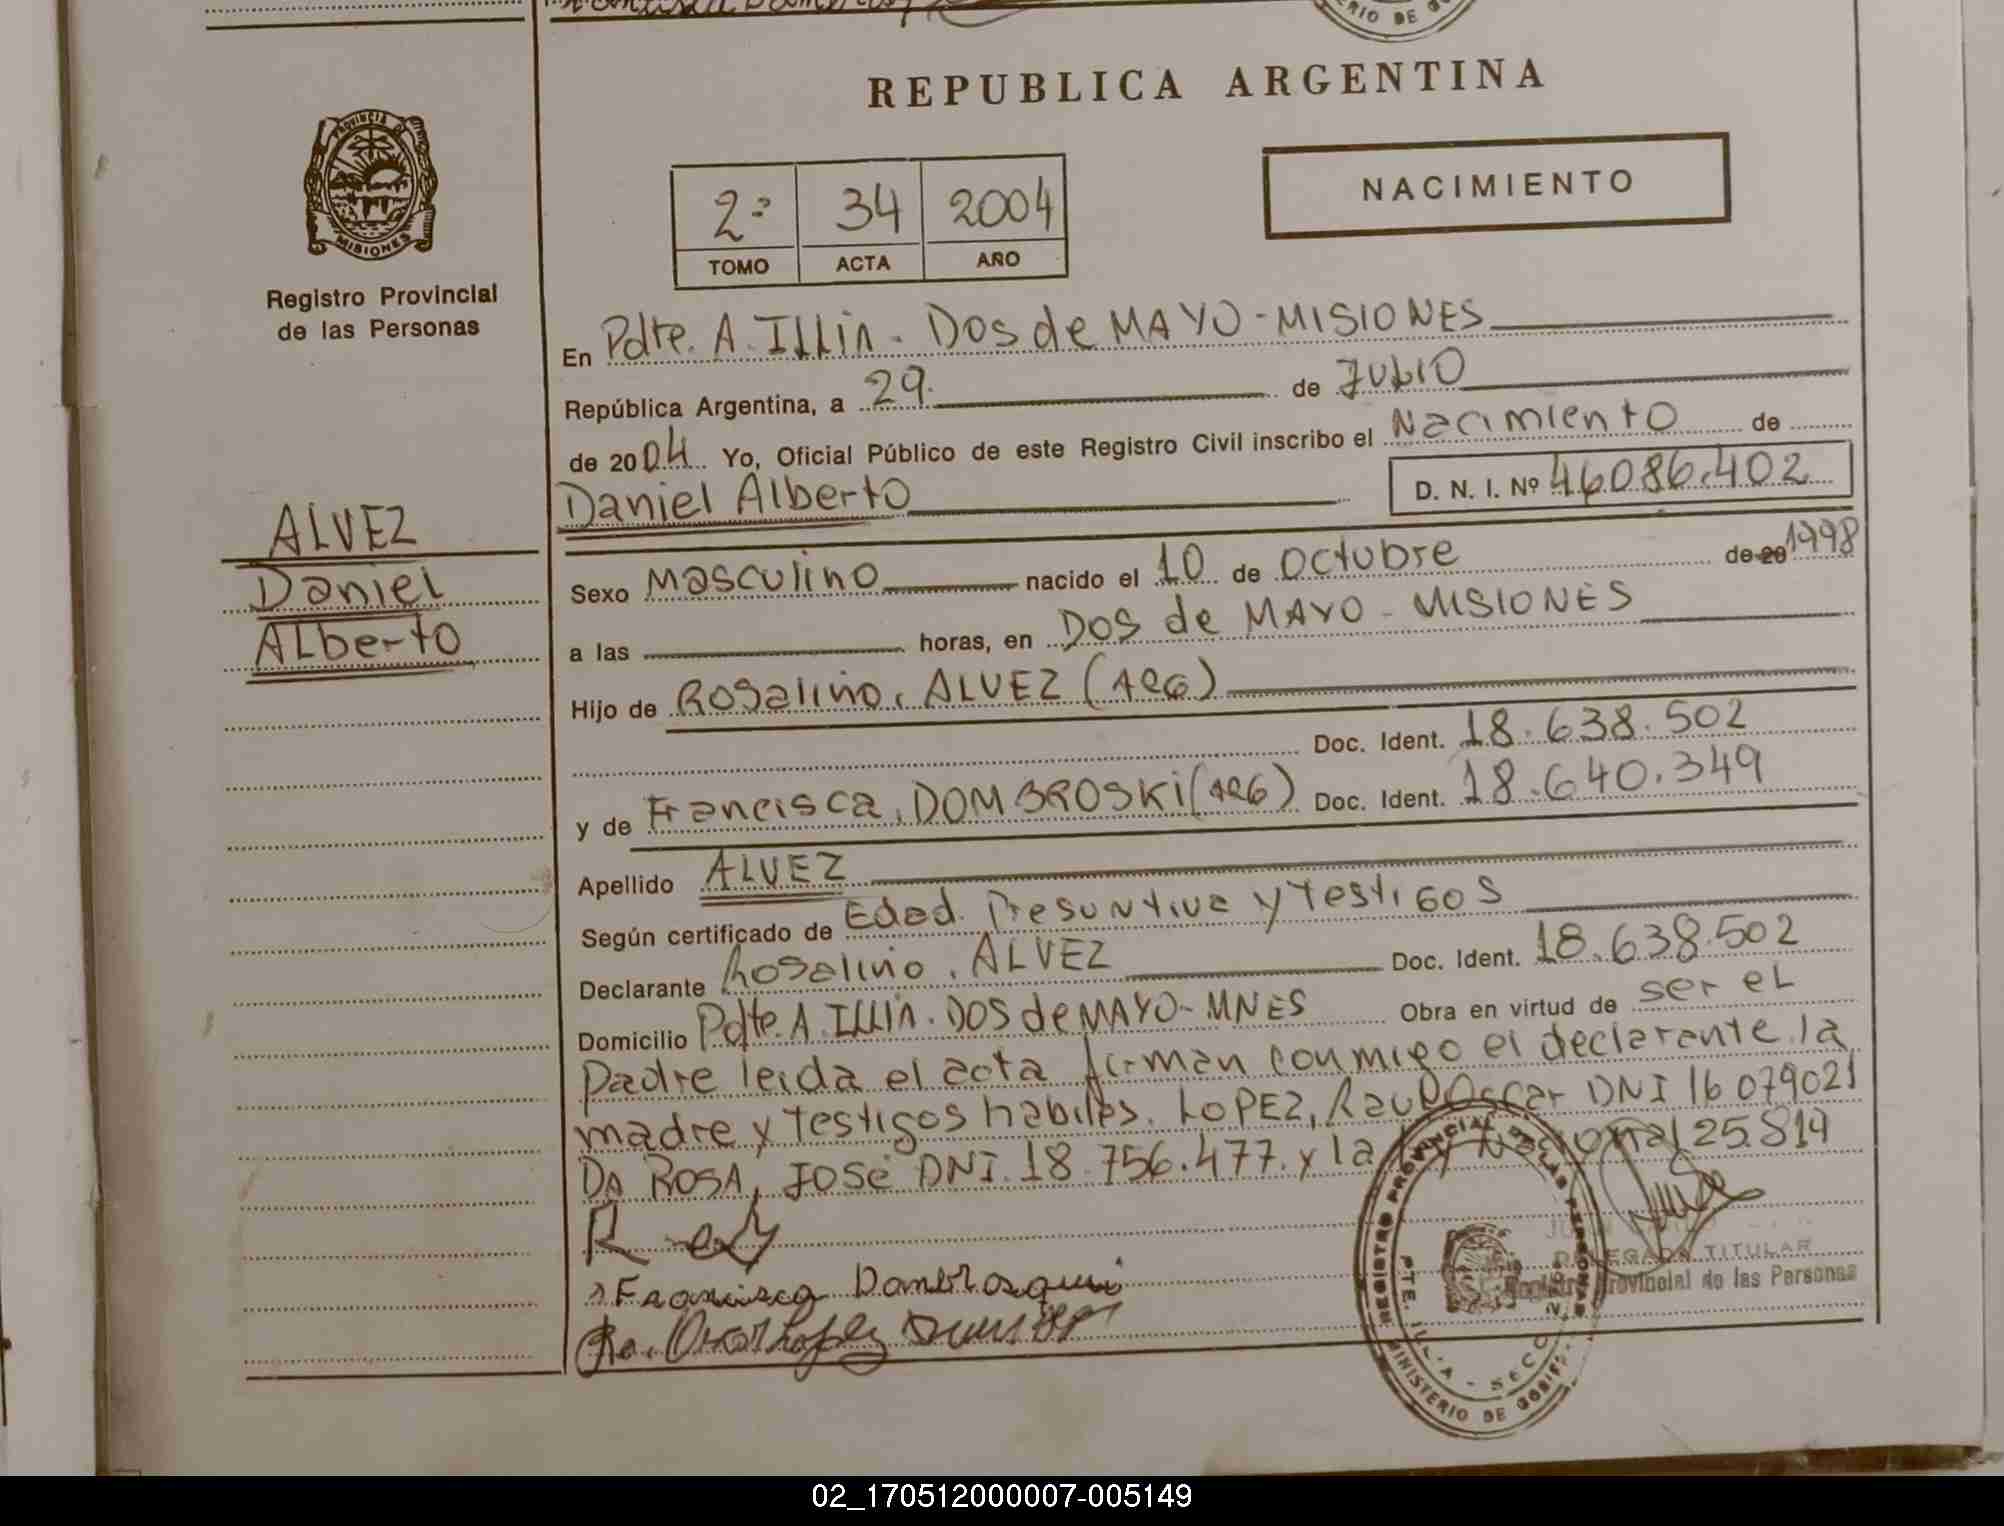 REPUBLICA ARGENTINA
PROVINCIA DE
MISIONES
Registro Provincial
de las Personas
2º 34 2004
TOMO ACTA AÑO
NACIMIENTO
En Pdte. A. ILLIA - DOS de MAYO - MISIONES
República Argentina, a 29 de JULIO
de 2004 Yo, Oficial Público de este Registro Civil inscribo el Nacimiento de
Daniel Alberto D. N. I. Nº 46086.402
ALVEZ
Daniel
ALberto
Sexo Masculino nacido el 10 de Octubre de 20 1998
a las horas, en DOS de MAYO - MISIONES
Hijo de Rosalino, ALVEZ (ARG)
Doc. Ident. 18.638.502
y de Francisca, DOMBROSKI (ARG) Doc. Ident. 18.640.349
Apellido ALVEZ
Según certificado de Edad Presuntiva y Testigos
Declarante Rosalino, ALVEZ Doc. Ident. 18.638.502
Domicilio Pdte. A. ILLIA. DOS de MAYO - MNES Obra en virtud de ser eL
Padre leida el acta firman conmigo el declarante, la
madre y Testigos habiles. LOPEZ, Raul Oscar DNI 16 079021
DA ROSA, JOSÉ DNI. 18.756.477. y la Nacional 25.819
Francisca
REGISTRO PROVINCIAL DE LAS PERSONAS
MINISTERIO DE
DELEGADO TITULAR
Registro Provincial de las Personas
02_170512000007-005149